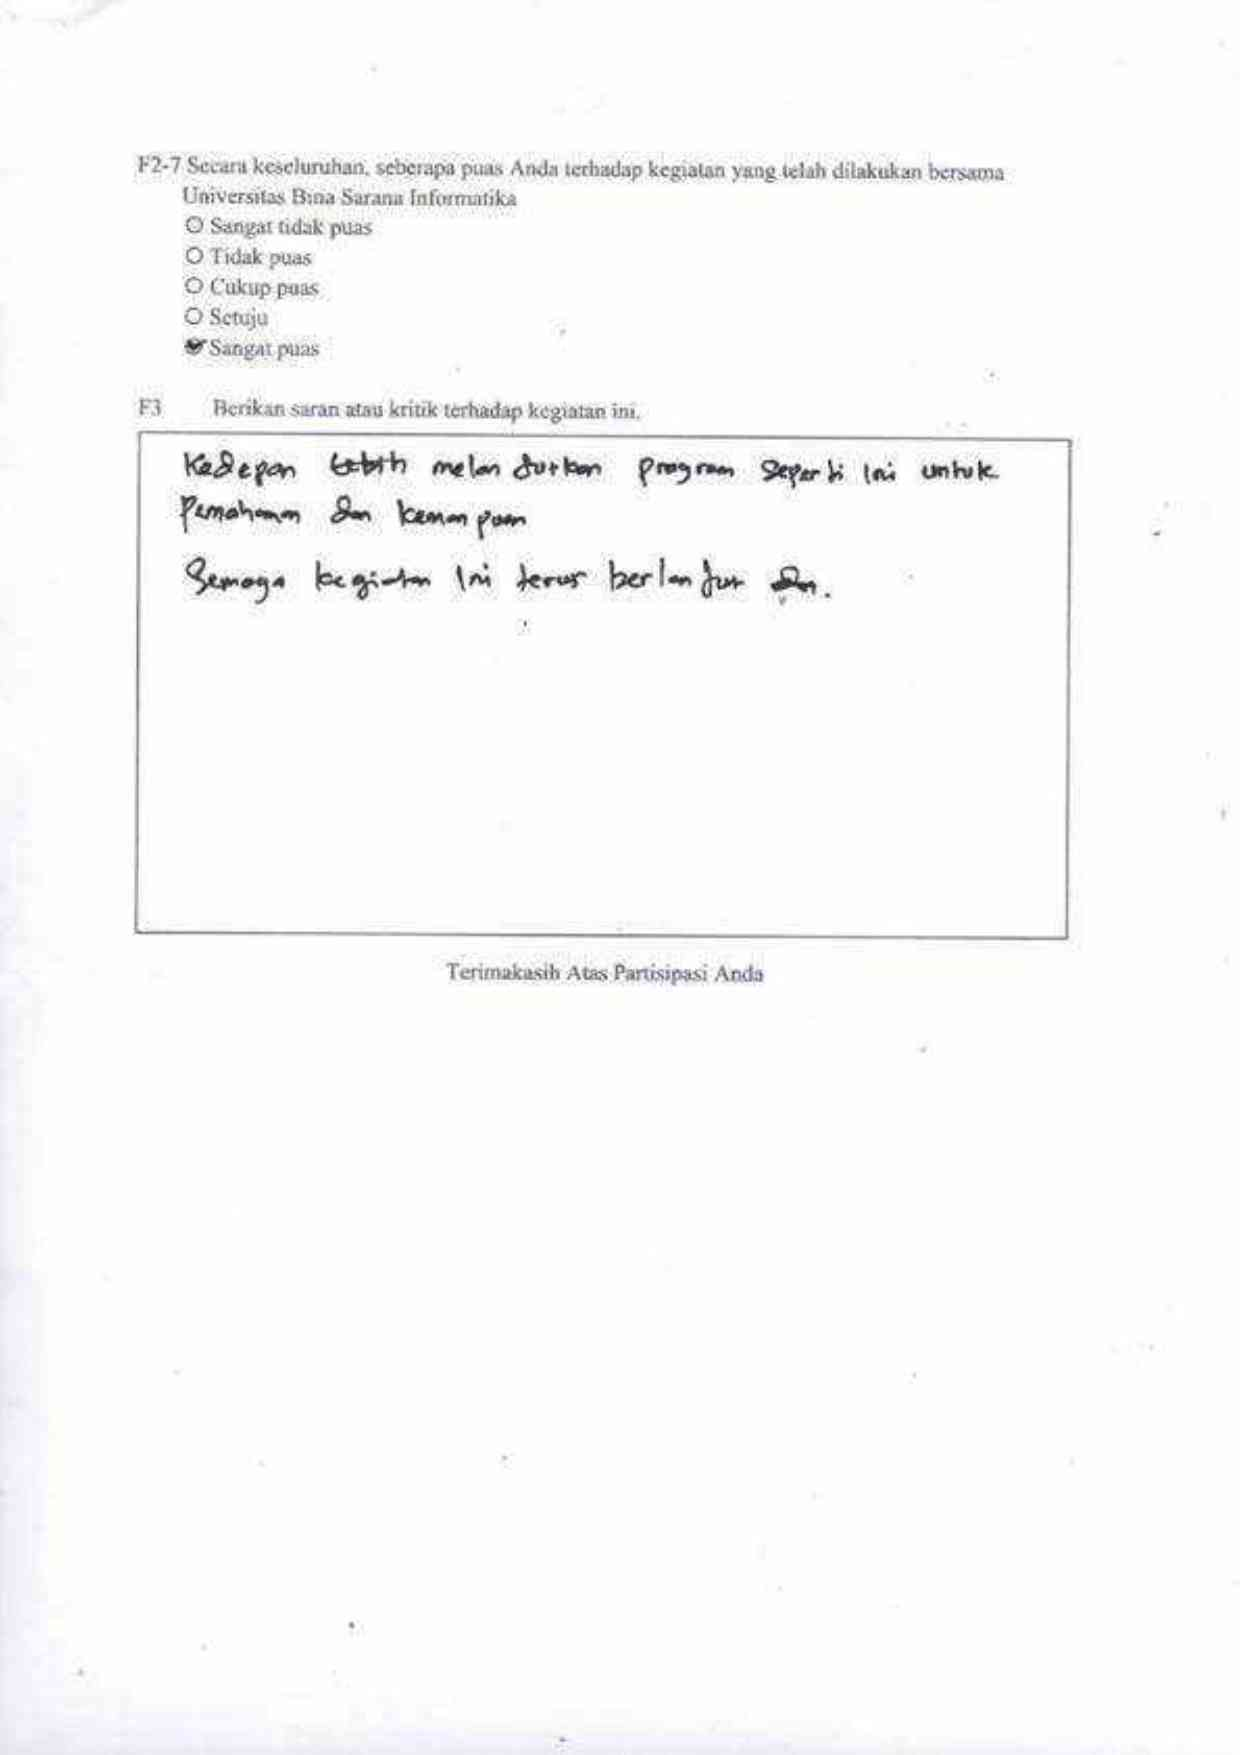 F2-7 Secara keseluruhan, seberapa puas Anda terhadap kegiatan yang telah dilakukan bersama
Universitas Bina Sarana Informatika
Sangat tidak puas
Tidak puas
Cukup puas
Setuju
Sangat puas
F3 Berikan saran atau kritik terhadap kegiatan ini.
Kedepan lebih melanjutkan program seperti ini untuk
Pemahaman dan kemampuan
Semoga kegiatan ini terus berlanjut
Terimakasih Atas Partisipasi Anda